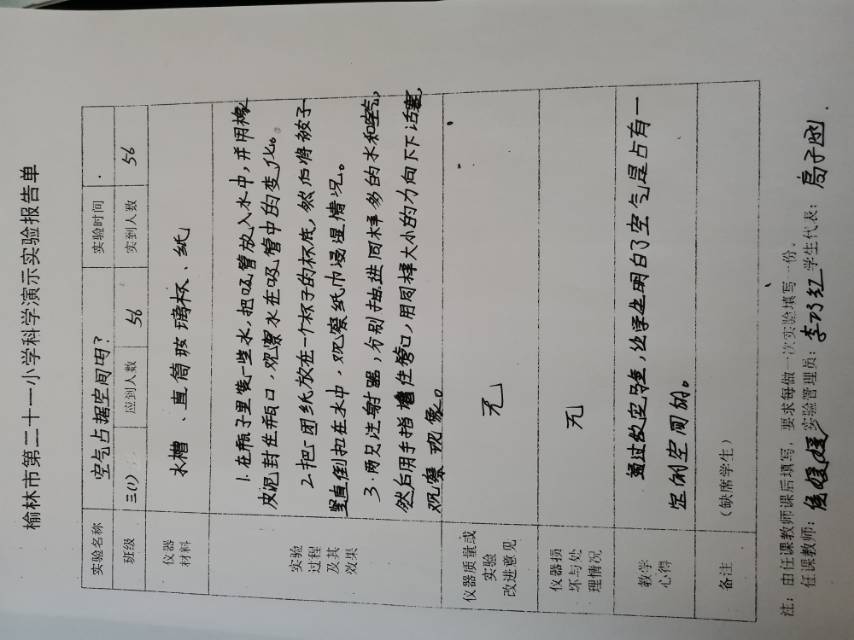 榆林市第二十一小学科学演示实验报告单
实验名称 空气占据空间吗? 实验时间
班级 三(1) 应到人数 56 实到人数 56
仪器
材料
水槽、直筒玻璃杯、纸
实验
过程
及其
效果
1.在瓶子里装一些水,把吸管放入水中,并用橡
皮泥封住瓶口,观察水在吸管中的变化。
2.把一团纸放在一个杯子的杯底,然后将被子
竖直倒扣在水中,观察纸巾湿情况。
3.两只注射器,分别抽进同样多的水和空气,
然后用手指堵住管口,用同样大小的力向下下活塞,
观察现象。
仪器质量或
实验
改进意见
无
仪器损
坏与处
理情况
无
教学
心得
通过教实验,让学生明白了空气是占有一
定的空间的。
备注 (缺席学生)
注:由任课教师课后填写,要求每做一次实验填写一份。
任课教师: 实验管理员:李巧红 学生代表: